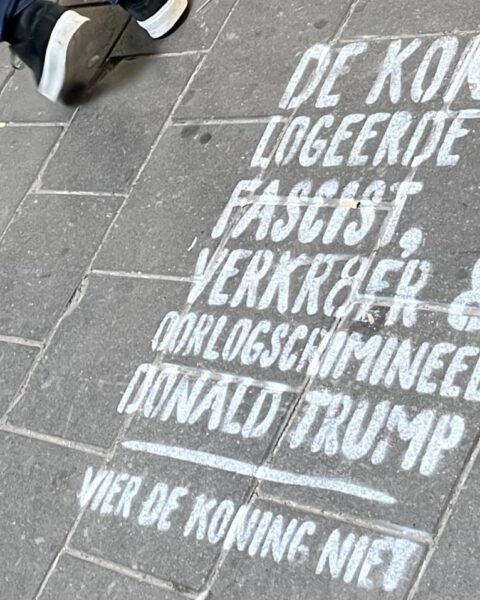 DE KON
LOGEERDE
FASCIST,
VERKR8ER &
OORLOGSCRIMINEEL
DONALD TRUMP
VIER DE KONING NIET